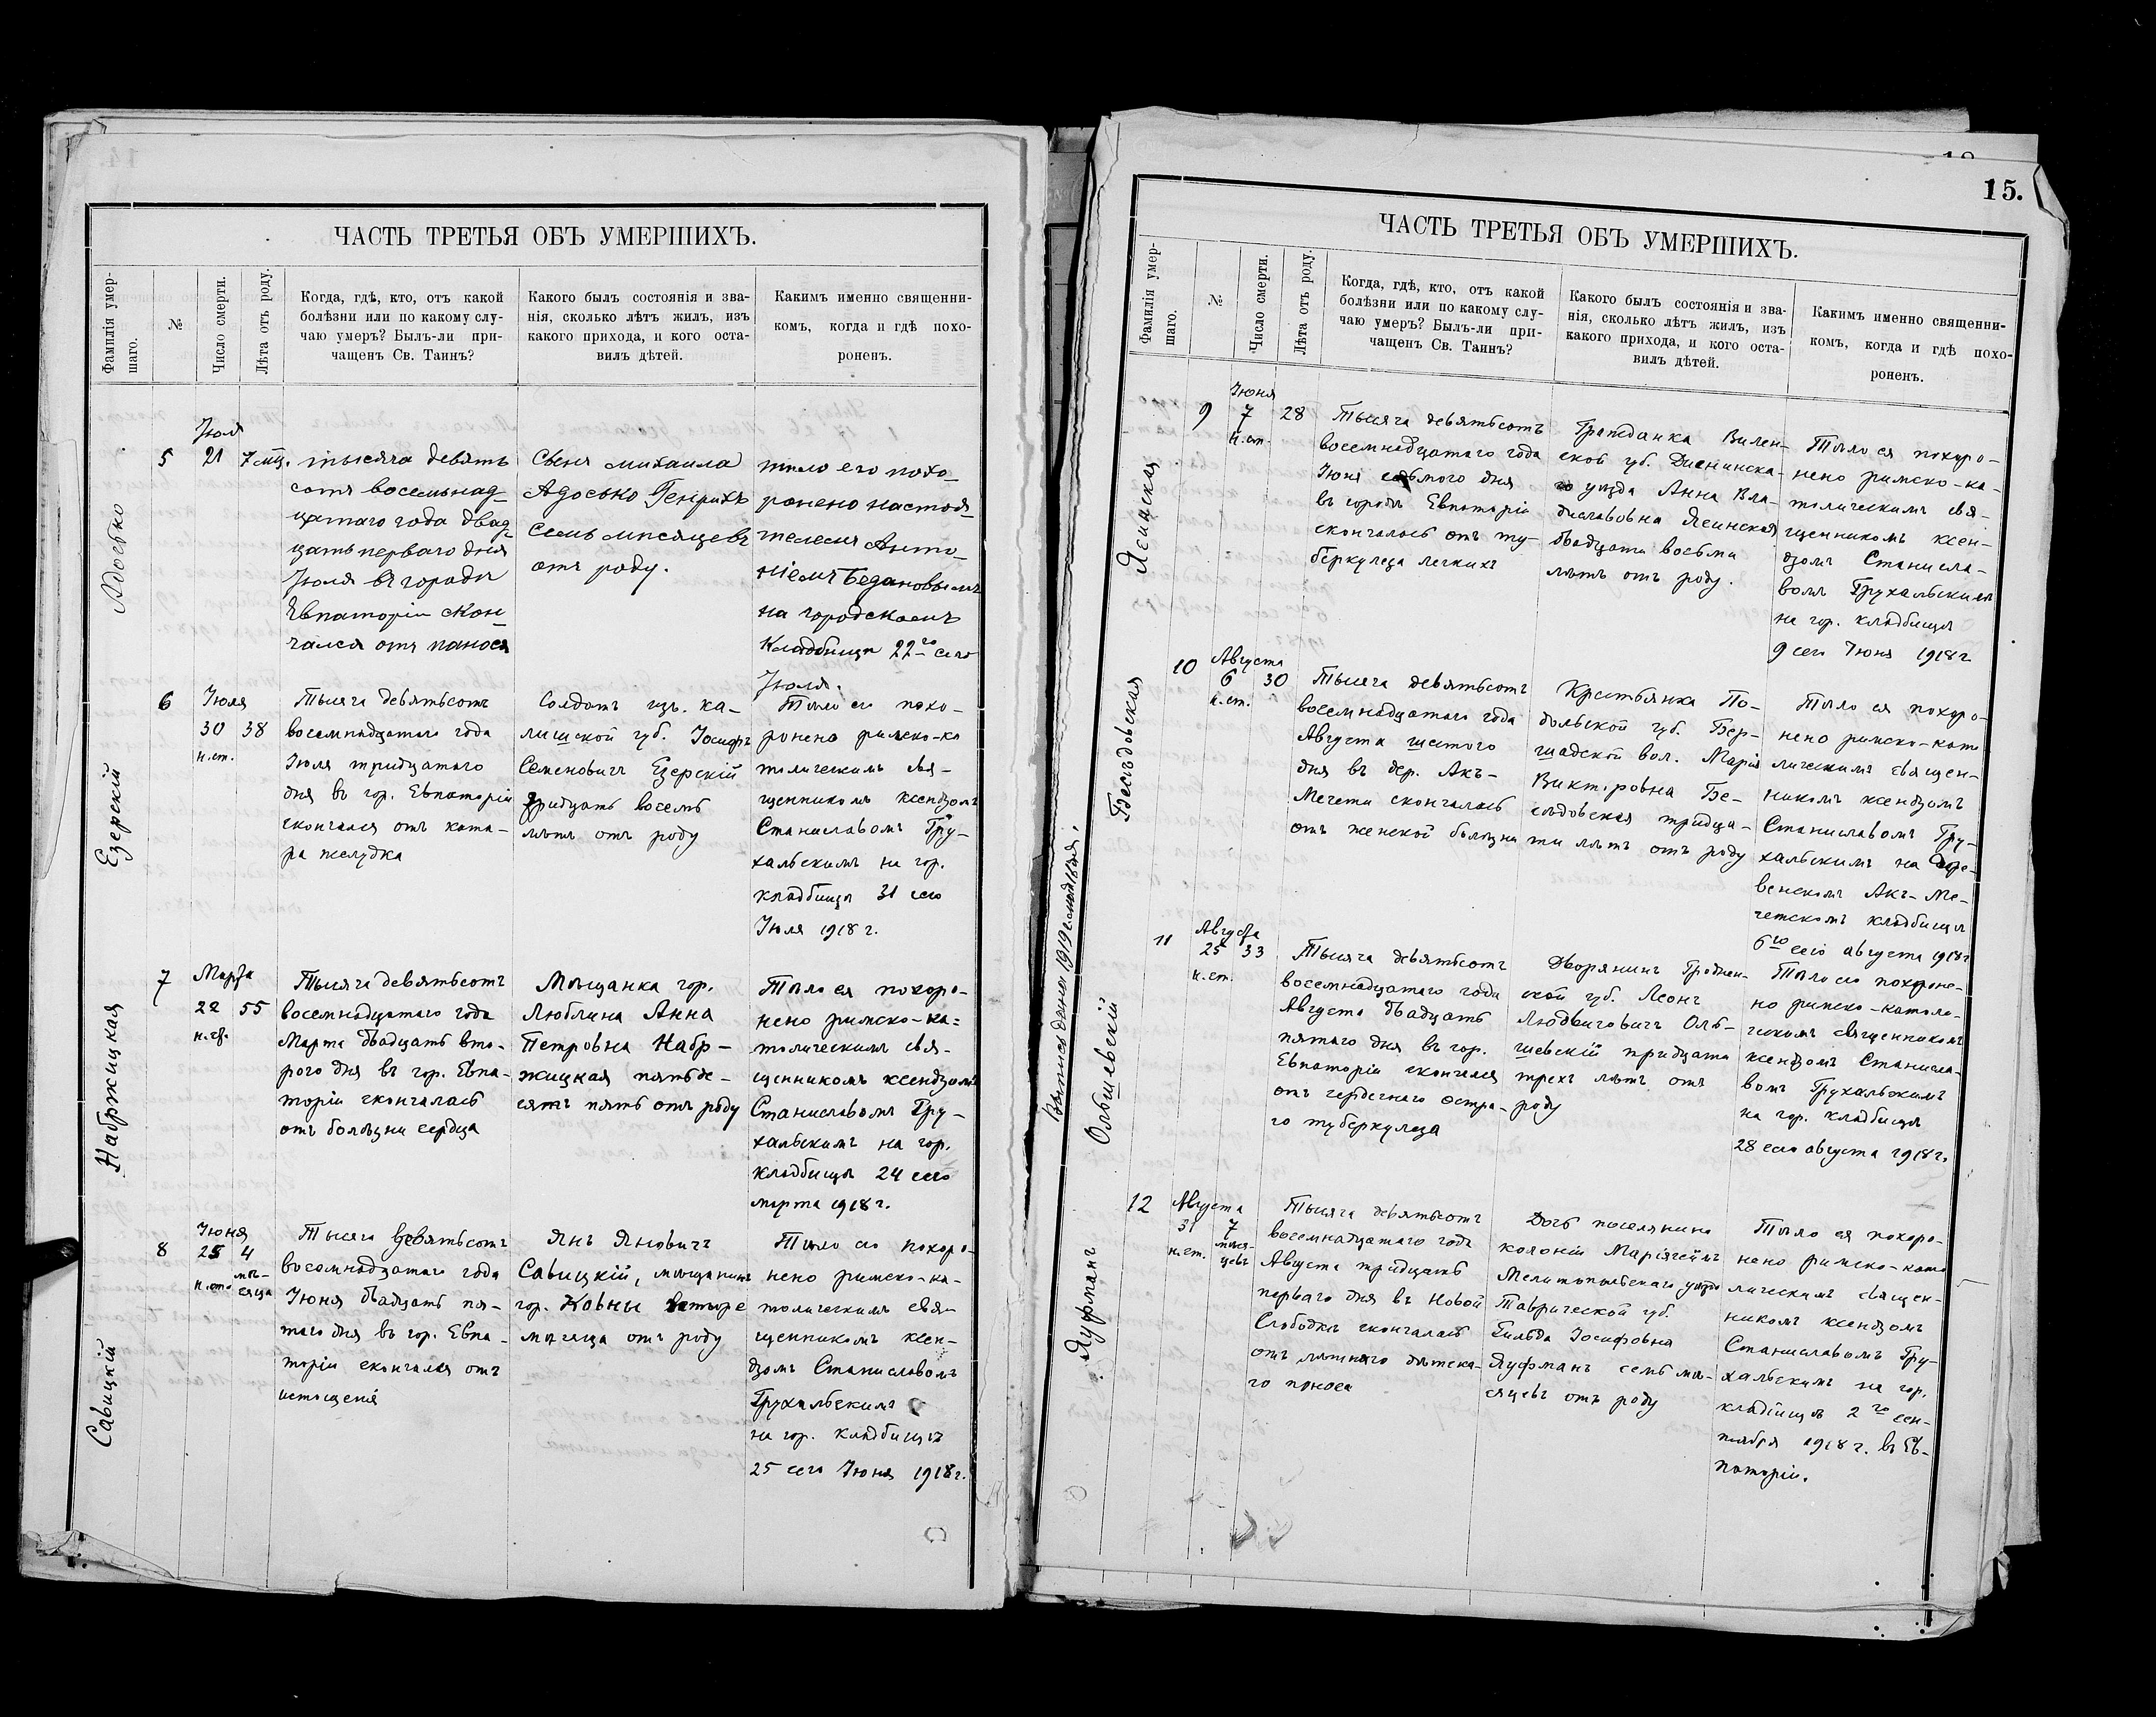 ЧАСТЬ ТРЕТЬЯ ОБЪ УМЕРШИХЪ.
Фамилія умер-
шаго.
№
Число смерти.
Лѣта отъ роду.
Когда, гдѣ, кто, отъ какой
болѣзни или по какому слу-
чаю умеръ? Былъ-ли при-
чащенъ Св. Таинъ?
Какого былъ состоянія и зва-
нія, сколько лѣтъ жилъ, изъ
какого прихода, и кого оста-
вилъ дѣтей.
Какимъ именно священни-
комъ, когда и гдѣ похо-
роненъ.
Адоско
5
Іюля
21
7 мц.
тысяча девять
сотъ восемьнад-
цатаго года двад-
цать перваго дня
Іюля въ городѣ
Евпаторіи скон-
чался отъ поноса
Сынъ михаила
Адосько Генрихъ
семь мисяцевъ
отъ роду.
тило его похо-
ронено настоя-
телемъ Анто-
ніемъ Бедановымъ
на городскомъ
Кладбищи 22го сего
Іюля.
Езерскій
6
Іюля
30
38
н.ст.
Тысяча девятьсотъ
восемнадцатаго года
Іюля тридцатаго
дня въ гор. Евпаторіи
скончался отъ ката-
ра желудка
Солдатъ изъ ка-
лишской губ. Іосифъ
Семеновичъ Езерскій
тридцать восемь
лѣтъ отъ роду
Тѣло его похо-
ронено римско-ка
толическимъ свя-
щенникомъ ксендзомъ
Станиславомъ Гру-
хальскимъ на гор.
кладбищѣ 31 сего
Іюля 1918 г.
Набржицкая
7
Марта
22
55
н.ст.
Тысяча девятьсотъ
восемнадцатаго года
Марта двадцать вто-
рого дня въ гор. Евпа-
торіи скончалась
отъ болѣзни сердца
Мѣщанка гор.
Люблина Анна
Петровна Набр-
жицкая пятьде-
сятъ пять отъ роду
Тѣло ея похоро-
нено римско-ка=
толическимъ свя-
щенникомъ ксендзомъ
Станиславомъ Гру-
хальскимъ на гор.
кладбищѣ 24 сего
марта 1918 г.
Савицкій
8
Іюня
25
4
н.ст.
мѣ-
сяца
Тысяча девятьсотъ
восемнадцатаго года
Іюня двадцать пя-
таго дня въ гор. Евпа-
торіи скончался отъ
истощенія
Янъ Яновичъ
Савицкій, мѣщанинъ
гор. Ковны четыре
мѣсяца отъ роду
Тѣло его похоро-
нено римско-ка-
толическимъ свя-
щенникомъ ксен-
дзомъ Станиславомъ
Грухальскимъ
на гор. кладбищѣ
25 сего Іюня 1918 г.
15.
ЧАСТЬ ТРЕТЬЯ ОБЪ УМЕРШИХЪ.
Фамилія умер-
шаго.
№
Число смерти.
Лѣта отъ роду.
Когда, гдѣ, кто, отъ какой
болѣзни или по какому слу-
чаю умеръ? Былъ-ли при-
чащенъ Св. Таинъ?
Какого былъ состоянія и зва-
нія, сколько лѣтъ жилъ, изъ
какого прихода, и кого оста-
вилъ дѣтей.
Какимъ именно священни-
комъ, когда и гдѣ похо-
роненъ.
Ясинская
9
Іюня
7
28
н.ст.
Тысяча девятьсотъ
восемнадцатаго года
Іюня седьмого дня
въ городѣ Евпаторіи
скончалась отъ ту-
беркулеза легкихъ
Гражданка Вилен-
ской губ. Дисненска-
го уѣзда Анна Вла-
диславовна Ясинская
двадцати восьми
лѣтъ отъ роду.
Тѣло ея похоро-
нено римско-ка-
толическимъ свя-
щенникомъ ксен-
дзомъ Станисла-
вомъ Грухальскимъ
на гор. кладбищѣ
9 сего Іюня 1918 г.
Бесѣдовская
10
Августа
6
30
н.ст.
Тысяча девятьсотъ
восемнадцатаго года
Августа шестого
дня въ дер. Акъ-
Мечети скончалась
отъ женской болѣзни
Крестьянка По-
дольской губ. Бер-
шадской вол. Марія
Викторовна Бе-
сѣдовская тридца-
ти лѣтъ отъ роду
Тѣло ея похоро-
нено римско-като
лическимъ священ-
никомъ ксендзомъ
Станиславомъ Гру-
хальскимъ на дере-
венскомъ Акъ-Ме-
четскомъ кладбищѣ
6го сего августа 1918 г.
Ольшевскій
11
Августа
25
33
н.ст.
Тысяча девятьсотъ
восемнадцатаго года
Августа двадцать
пятаго дня въ гор.
Евпаторіи скончался
отъ сердечнаго остра-
го туберкулеза
Дворянинъ Гроднен-
ской губ. Леонъ
Людвиговичъ Оль-
шевскій тридцати
трехъ лѣтъ отъ
роду
Тѣло его похороне-
но римско-католи-
ческимъ священникомъ
ксендзомъ Станисла-
вомъ Грухальскимъ
на гор. кладбищѣ
28 сего августа 1918 г.
Яуфманъ
12
Августа
31
7
н.ст.
мѣся-
цевъ
Тысяча девятьсотъ
восемнадцатаго года
Августа тридцать
перваго дня въ Новой
Слободкѣ скончалась
отъ лѣтняго дѣтска-
го поноса
Дочь поселянина
колоніи Маріягеймъ
Мелитопольскаго уѣзда
Таврической губ.
Гильда Іосифовна
Яуфманъ семь мѣ-
сяцевъ отъ роду
Тѣло ея похоро-
нено римско-като
лическимъ священ-
никомъ ксендзомъ
Станиславомъ Гру-
хальскимъ на гор.
кладбищѣ 2го сен-
тября 1918 г. въ Ев-
паторіи.